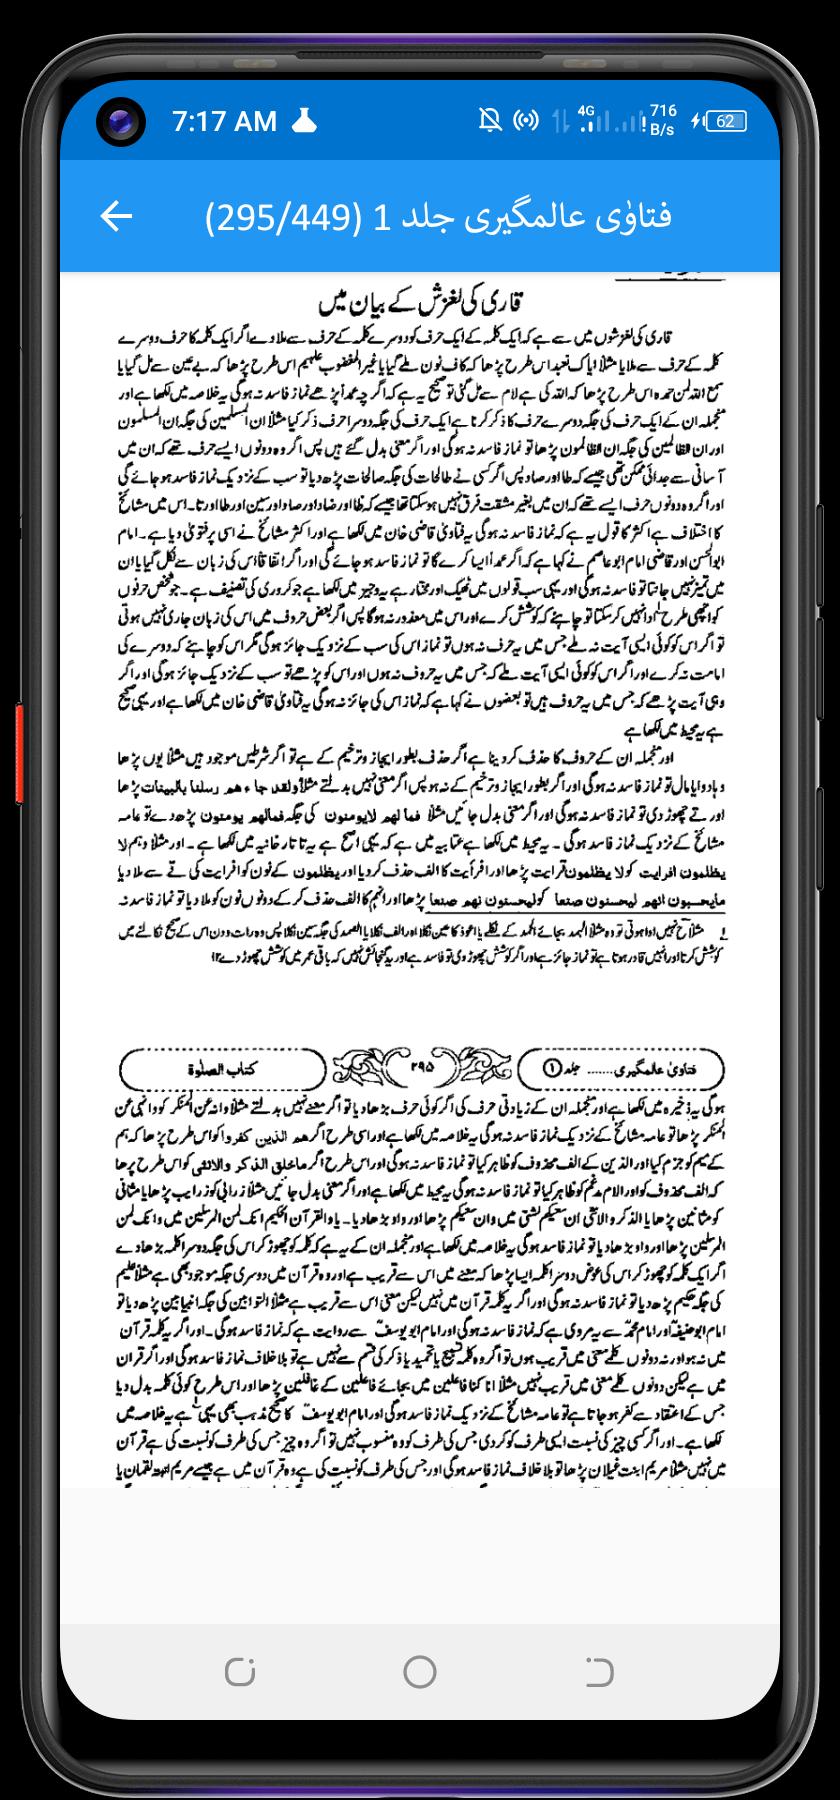 7:17 AM
4G
716 B/s
62
فتاوٰی عالمگیری جلد 1 (295/449)
قاری کی لغزش کے بیان میں
قاری کی لغزشوں میں سے ہے کہ ایک کلمہ کے ایک حرف کو دوسرے کلمہ کے حرف سے ملا دے اگر ایک کلمہ کا حرف دوسرے
کلمہ کے حرف سے ملا یا مثلاً ایاک نعبد اس طرح پڑھا کہ کاف نون سے مل گیا یا غیر المغضوب علیہم اس طرح پڑھا کہ ب عین سے مل گیا یا
سمع اللہ لمن حمدہ اس طرح پڑھا کہ اللہ کی ہ لام سے مل گئی تو صحیح یہ ہے کہ اگر چہ عمداً پڑھے نماز فاسد نہ ہوگی یہ خلاصہ میں لکھا ہے اور
منجملہ ان کے ایک حرف کی جگہ دوسرے حرف کا ذکر کرنا ہے ایک حرف کی جگہ دوسرا حرف ذکر کیا مثلاً ان المسلمین کی جگہ ان المسلمون
اور ان الظالمین کی جگہ ان الظالمون پڑھا تو نماز فاسد نہ ہوگی اور اگر معنی بدل گئے ہیں پس اگر وہ دونوں ایسے حرف تھے کہ ان میں
آسانی سے جدائی ممکن تھی جیسے کہ طا اور صاد پس اگر کسی نے طالحات کی جگہ صالحات پڑھ دیا تو سب کے نزدیک نماز فاسد ہو جائے گی
اور اگر وہ دونوں حرف ایسے تھے کہ ان میں بغیر مشقت فرق نہیں ہو سکتا تھا جیسے کہ ظا اور ضاد اور صاد اور سین اور طا اور تا۔ اس میں مشائخ
کا اختلاف ہے اکثر کا قول یہ ہے کہ نماز فاسد نہ ہوگی یہ فتاویٰ قاضی خان میں لکھا ہے اور اکثر مشائخ نے اسی پر فتویٰ دیا ہے۔ امام
ابوالحسن اور قاضی امام ابو عاصم نے کہا ہے کہ اگر عمداً ایسا کرے گا تو نماز فاسد ہو جائے گی اور اگر اتفاقاً اس کی زبان سے نکل گیا یا ان
میں تمیز نہیں جانتا تو نماز فاسد نہ ہوگی اور یہی سب قولوں میں ٹھیک اور مختار ہے یہ وجیز میں لکھا ہے جو کردری کی تصنیف ہے۔ جو شخص حرفوں
کو اچھی طرح ادا نہیں کر سکتا تو چاہئے کہ کوشش کرے اور اس میں معذور نہ ہوگا پس اگر بعض حروف میں اس کی زبان جاری نہیں ہوتی
تو اگر اس کو کوئی ایسی آیت نہ ملے جس میں یہ حرف نہ ہوں تو نماز اس کی سب کے نزدیک جائز ہوگی مگر اس کو چاہئے کہ دوسرے کی
امامت نہ کرے اور اگر اس کو کوئی ایسی آیت ملے کہ جس میں یہ حروف نہ ہوں اور اس کو پڑھے تو سب کے نزدیک جائز ہوگی اور اگر
وہی آیت پڑھے کہ جس میں یہ حروف ہیں تو بعضوں نے کہا ہے کہ نماز اس کی جائز نہ ہوگی یہ فتاویٰ قاضی خان میں لکھا ہے اور یہی صحیح
ہے یہ محیط میں لکھا ہے
اور منجملہ ان کے حروف کا حذف کر دینا ہے اگر حذف بطور ایجاز و ترخیم کے ہے تو اگر شرطیں موجود ہیں مثلاً یوں پڑھا
و نادوا یا مال تو نماز فاسد نہ ہوگی اور اگر بطور ایجاز و ترخیم کے نہ ہو پس اگر معنی نہیں بدلتے مثلاً ولقد جاء هم رسلنا بالبینات پڑھا
اور تے چھوڑ دی تو نماز فاسد نہ ہوگی اور اگر معنی بدل جائیں مثلاً فما لهم لایومنون کی جگہ فمالهم یومنون پڑھ دے تو عامہ
مشائخ کے نزدیک نماز فاسد ہوگی۔ یہ محیط میں لکھا ہے عتابیہ میں ہے کہ یہی اصح ہے یہ تا تارخانیہ میں لکھا ہے۔ اور مثلاً وہم لا
یظلمون افرایت کو لا یظلمون فرایت پڑھا اور افرأیت کا الف حذف کر دیا اور یظلمون کے نون کو افرایت کی فے سے ملا دیا
مایحسبون انهم لیحسنون صنعا کو لیحسنون نهم صنعا پڑھا اور انہم کا الف حذف کر کے دونوں نون کو ملا دیا تو نماز فاسد نہ
۱ مثلاً ح نہیں ادا ہوتی تو وہ مثلاً الہمد بجائے الحمد کے نکلے یا اعوذ کا عین نکلا اور الف نکلا یا الصمد کی جگہ سین نکلا پس وہ رات و دن اس کے صحیح نکالنے میں
کوشش کرتا اور نہیں قادر ہوتا ہے تو نماز جائز ہے اور اگر کوشش چھوڑ دی تو فاسد ہے اور یہ گنجائش نہیں کہ باقی عمر میں کوشش چھوڑ دے ۱۲
فتاویٰ عالمگیری...... جلد ۱ ۲۹۵ کتاب الصلٰوۃ
ہوگی یہ ذخیرہ میں لکھا ہے اور منجملہ ان کے زیادتی حرف کی اگر کوئی حرف بڑھا دیا تو اگر معنے نہیں بدلتے مثلاً وانہ عن المنکر کو وانہی عن
المنکر پڑھا تو عامہ مشائخ کے نزدیک نماز فاسد نہ ہوگی یہ خلاصہ میں لکھا ہے اور اسی طرح اگر هم الذین کفروا کو اس طرح پڑھا کہ ہم
کے میم کو جزم کیا اور الذین کے الف محذوف کو ظاہر کیا تو نماز فاسد نہ ہوگی اور اس طرح اگر ماخلق الذکر والانثی کو اس طرح پڑھا
کہ الف محذوف کو اور لام مدغم کو ظاہر کیا تو نماز فاسد نہ ہوگی یہ محیط میں لکھا ہے اور اگر معنی بدل جائیں مثلاً زرابی کو زرابیب پڑھا یا مثانی
کو مثانین پڑھا یا الذکر والانثی ان سعیکم لشتی میں وان سعیکم پڑھا اور واو بڑھا دیا۔ یا والقرآن الحکیم انک لمن المرسلین میں وانک لمن
المرسلین پڑھا اور واو بڑھا دیا تو نماز فاسد ہوگی یہ خلاصہ میں لکھا ہے اور منجملہ ان کے یہ ہے کہ کلمہ کو چھوڑ کر اس کی جگہ دوسرا کلمہ بڑھا دے
اگر ایک کلمہ کو چھوڑ کر اس کی عوض دوسرا کلمہ ایسا پڑھا کہ معنے میں اس سے قریب ہے اور وہ قرآن میں دوسری جگہ موجود بھی ہے مثلاً علیم
کی جگہ حکیم پڑھ دیا تو نماز فاسد نہ ہوگی اور اگر یہ کلمہ قرآن میں نہیں لیکن معنی اس سے قریب ہے مثلاً التوابین کی جگہ التیابین پڑھ دیا تو
امام ابوحنیفہؒ اور امام محمدؒ سے یہ مروی ہے کہ نماز فاسد نہ ہوگی اور امام ابو یوسفؒ سے روایت ہے کہ نماز فاسد ہوگی۔ اور اگر یہ کلمہ قرآن
میں نہ ہو اور نہ دونوں کلمے معنی میں قریب ہوں تو اگر وہ کلمہ تسبیح یا تحمید یا ذکر کی قسم سے نہیں ہے تو بلا خلاف نماز فاسد ہوگی اور اگر قرآن
میں ہے لیکن دونوں کلمے معنی میں قریب نہیں مثلاً انا کنا فاعلین میں بجائے فاعلین کے غافلین پڑھا اور اس طرح کوئی کلمہ بدل دیا
جس کے اعتقاد سے کفر ہو جاتا ہے تو عامہ مشائخ کے نزدیک نماز فاسد ہوگی اور امام ابو یوسفؒ کا صحیح مذہب بھی یہی ہے یہ خلاصہ میں
لکھا ہے۔ اور اگر کسی چیز کی نسبت ایسی طرف کو کر دی جس کی طرف کو وہ منسوب نہیں تو اگر وہ چیز جس کی طرف کو نسبت کی ہے قرآن
میں نہیں مثلاً مریم ابنت غیلان پڑھا تو بلا خلاف نماز فاسد ہوگی اور جس کی طرف کو نسبت کی ہے وہ قرآن میں ہے جیسے مریم ابنت لقمان یا